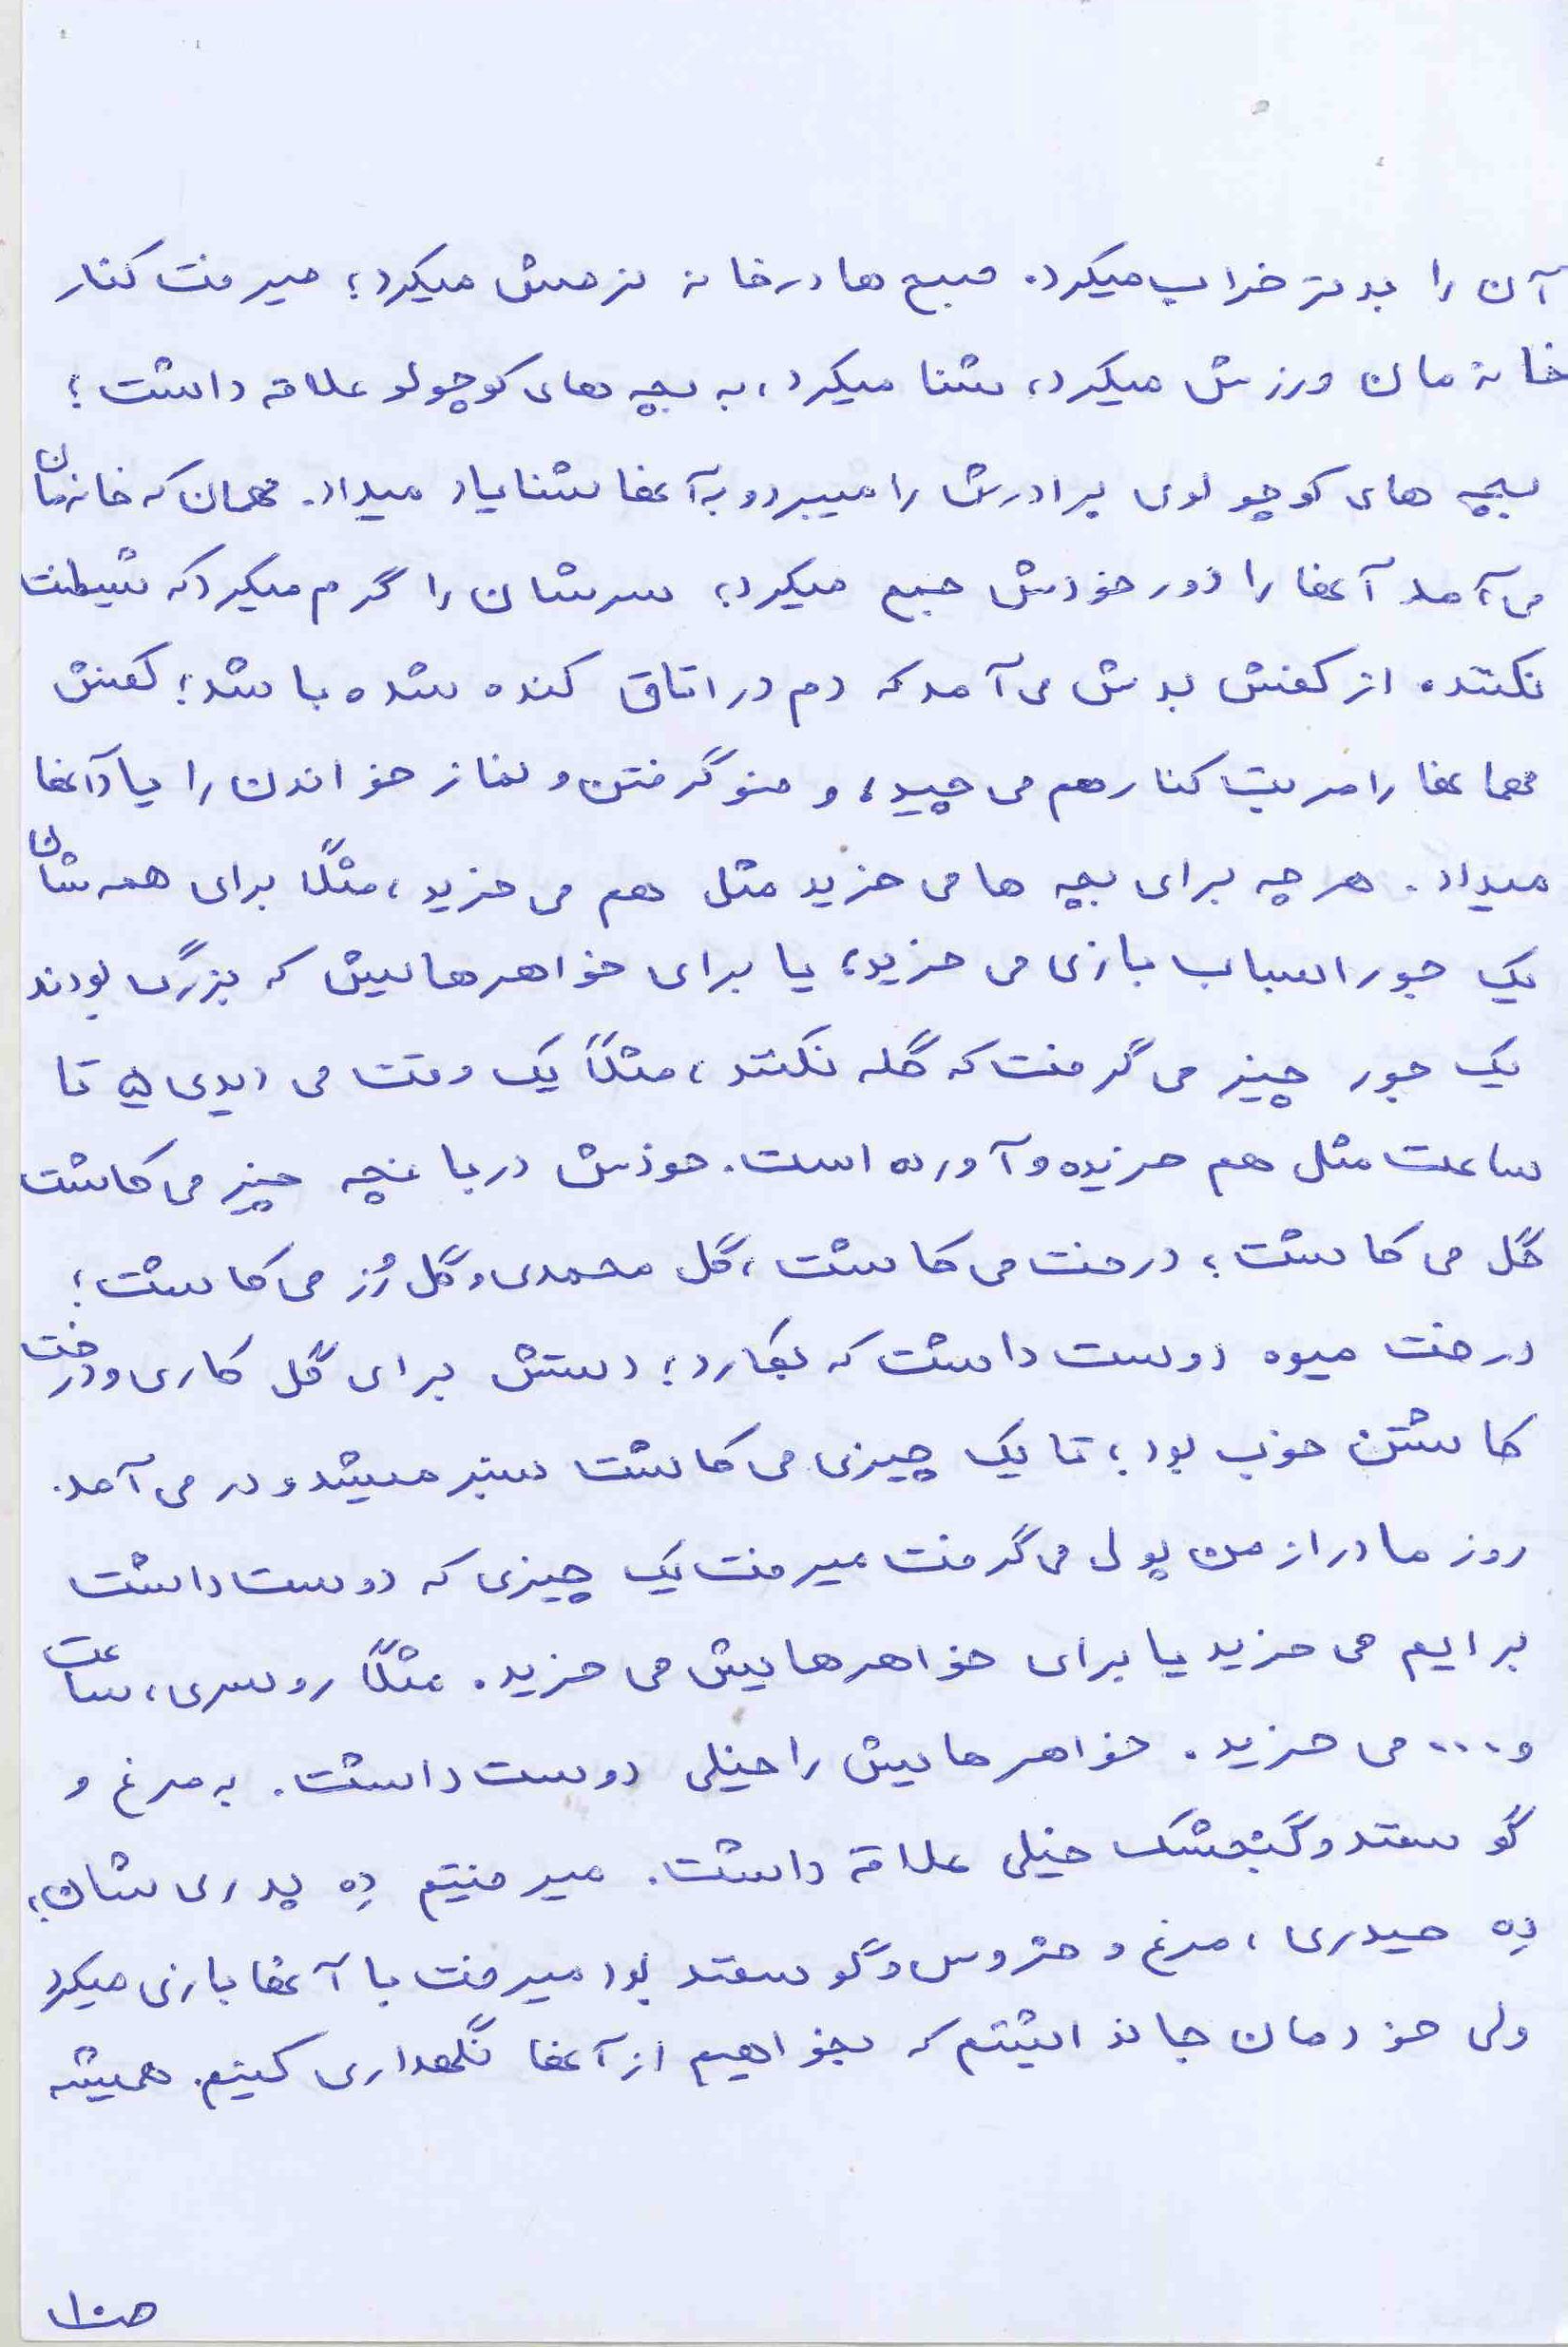 آن را بدتر خراب میکرد. صبح ها در خانه نرمش میکرد؛ میرفت کنار
خانه مان ورزش میکرد، شنا میکرد، به بچه های کوچولو علاقه داشت؛
بچه های کوچولوی برادرش را میبرد و به آنها شنا یاد میداد. مهمان که خانه مان
می آمد آنها را دور خودش جمع میکرد؛ سرشان را گرم میکرد که شیطنت
نکنند. از کفش بدش می آمد که دم در اتاق کنده شده باشد؛ کفش
مهمانها را مرتب کنار هم می چید، وضو گرفتن و نماز خواندن را یاد آنها
میداد. هر چه برای بچه ها می خرید مثل هم می خرید، مثلاً برای همه شان
یک جور اسباب بازی می خرید؛ یا برای خواهرهایش که بزرگ بودند
یک جور چیز می گرفت که گله نکنند، مثلاً یک وقت می دیدی ۵ تا
ساعت مثل هم خریده و آورده است. خودش در باغچه چیز می کاشت
گل می کاشت؛ درخت می کاشت، گل محمدی و گل رُز می کاشت؛
درخت میوه دوست داشت که بکارد؛ دستش برای گل کاری و درخت
کاشتن خوب بود؛ تا یک چیزی می کاشت سبز میشد و در می آمد.
روز مادر از من پولی می گرفت میرفت یک چیزی که دوست داشت
برایم می خرید یا برای خواهرهایش می خرید. مثلاً روسری، ساعت
و.... می خرید. خواهرهایش را خیلی دوست داشت. به مرغ و
گوسفند و گنجشک خیلی علاقه داشت. میرفتیم دِه پدری شان،
دِه حیدری، مرغ و خروس و گوسفند بود میرفت با آنها بازی میکرد
ولی خودمان جا نداشتیم که بخواهیم از آنها نگهداری کنیم. همیشه
ص۱۰